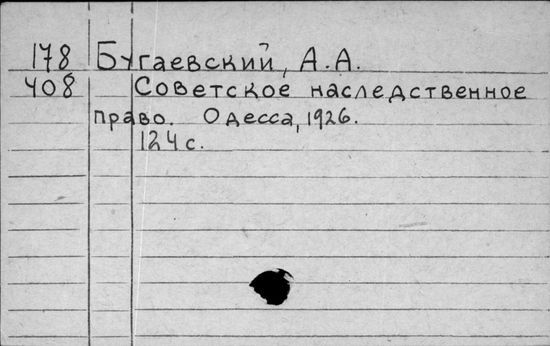 178 Бугаевский, А.А.
408 Советское наследственное
право. Одесса, 1926.
124 с.